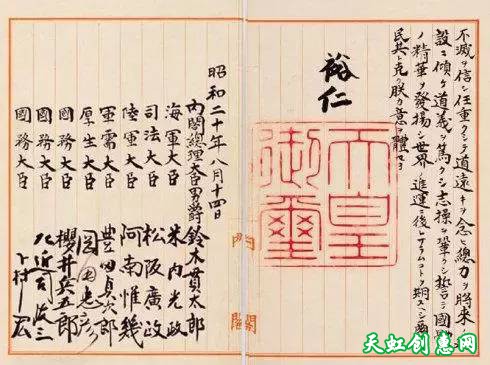 不滅ヲ信シ任重クシテ道遠キヲ念ヒ總力ヲ將來
設ニ傾ケ道義ヲ篤クシ志操ヲ鞏クシ誓テ國
ノ精華ヲ發揚シ世界ノ進運ニ後レサラムコトヲ期スヘシ爾
民其レ克ク朕カ意ヲ體セヨ
裕仁
天皇
御璽
內閣
昭和二十年八月十四日
內閣總理大臣男爵 鈴木貫太郎
海軍大臣 米內光政
司法大臣 松阪廣政
陸軍大臣 阿南惟幾
軍需大臣 豊田貞次郎
厚生大臣 岡田忠彦
國務大臣 櫻井兵五郎
國務大臣 左近司政三
國務大臣 下村宏
天虹创意网